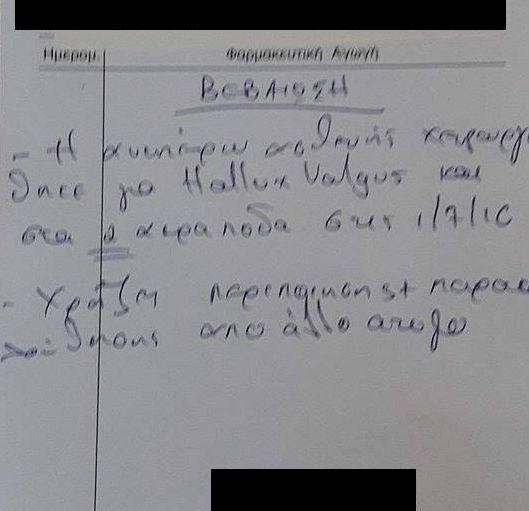 Ημερομ. Φαρμακευτική Αγωγή
ΒΕΒΑΙΩΣΗ
- Η ανωτέρω ασθενής χειρουργή
θηκε για Hallux Valgus και
στα 2 άκρα πόδα στις 1/7/16
- Χρήζει περιποίησης + παρακο
λούθησης από άλλο άτομο